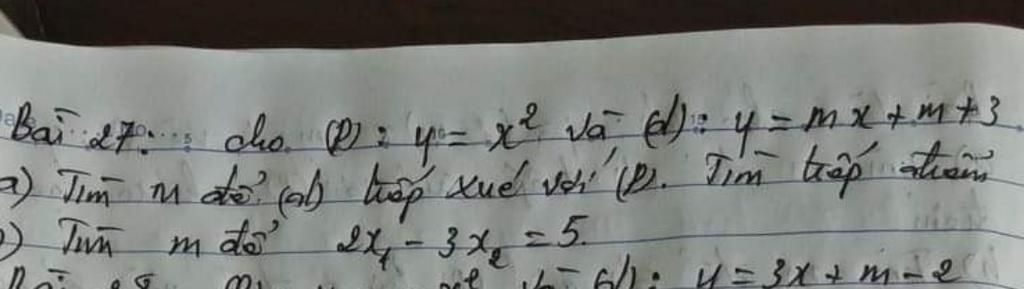 Bài 27: cho (P): y = x² và (d): y = mx + m + 3
a) Tìm m để (d) tiếp xúc với (P). Tìm tiếp điểm
) Tìm m để 2x₁ - 3x₂ = 5.
(d): y = 3x + m - 2